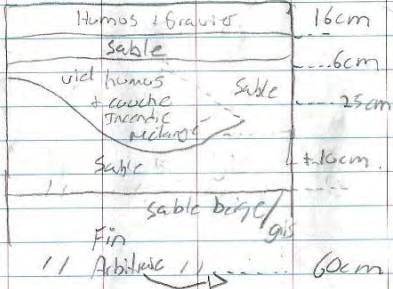 Humus + Gravier 16cm
Sable
6cm
vieil humus
+ couche Sable
Incendie 25cm
Sable ± 10cm
" "
sable beige/gris
Fin
" Arbitraire " 60cm